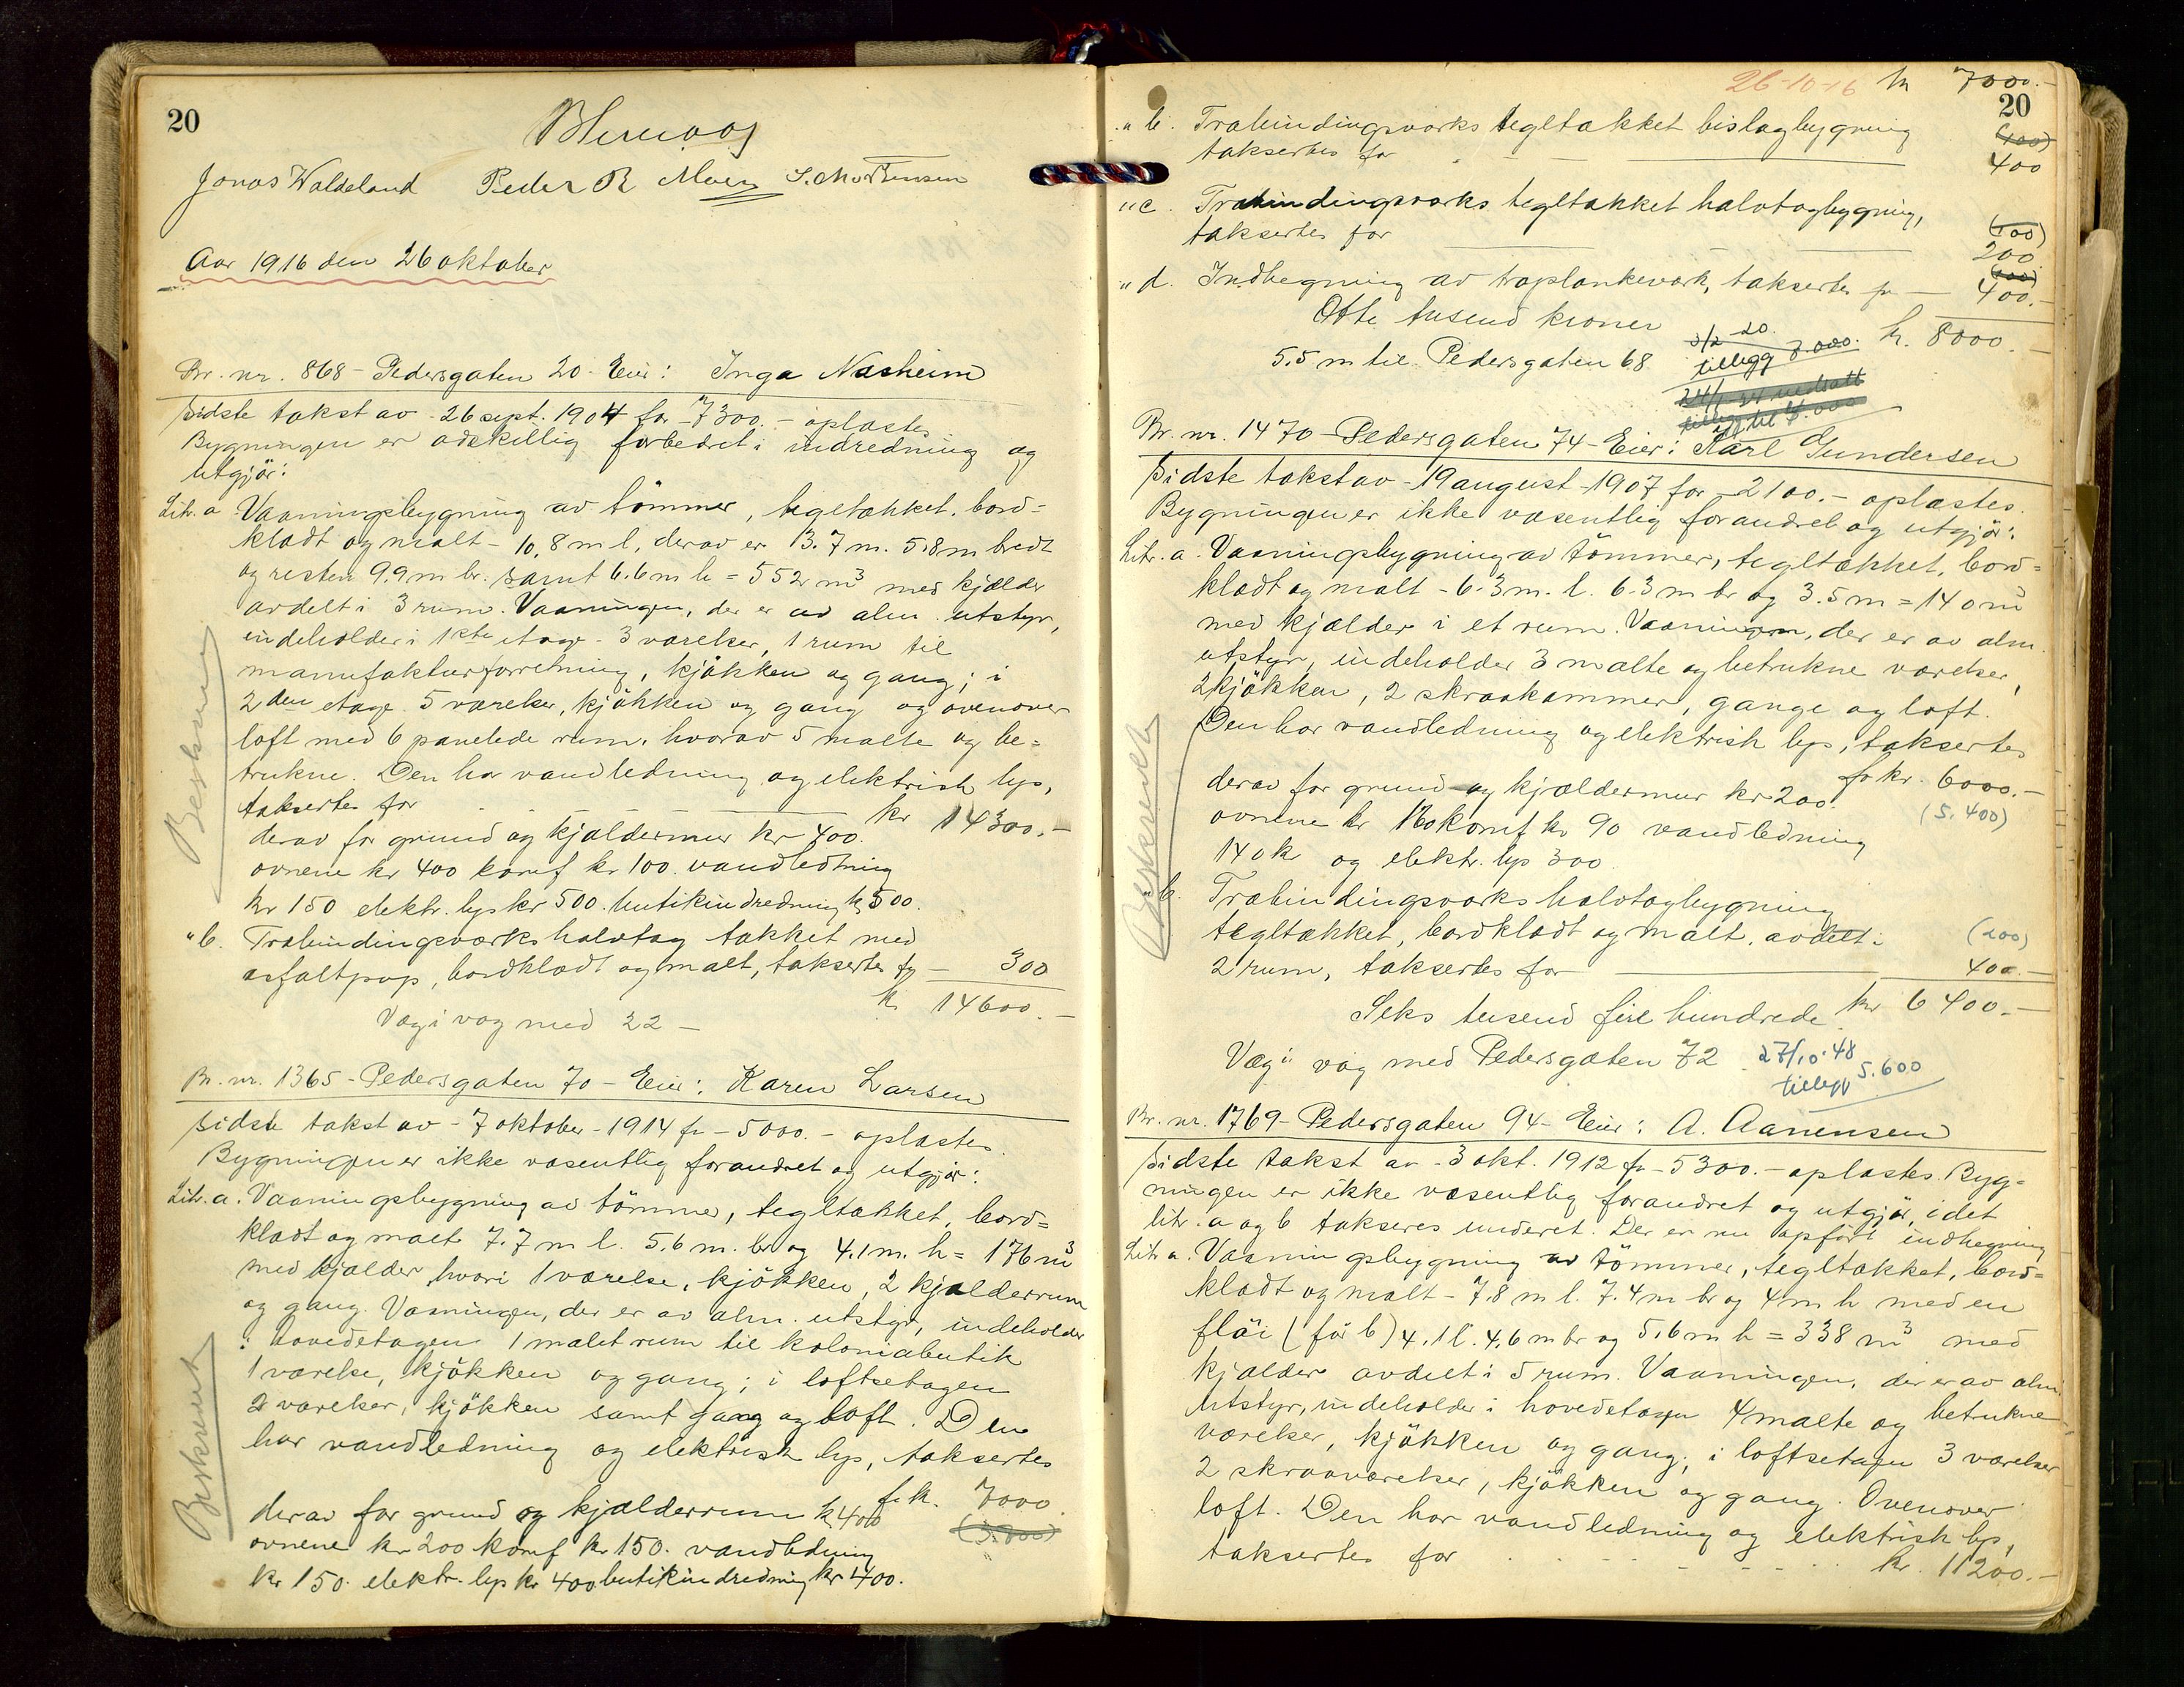 20
Jonas Waldeland Peder R Moen S. Mortensen
Aar 1916 den 26 oktober
Br. nr. 868 - Pedersgaten 20 - Eier: Inga Næsheim
Sidste takst av - 26 sept. 1904 for - 7300. - oplæstes
Bygningen er adskillig forbedret i indredning og
utgjör:
Litr. a Vaaningsbygning av tömmer, tegltækket. bord=
klædt og malt - 10,8 m l, derav er 3.7 m. 5.8 m bredt
og resten 9.9 m br. samt 6.6 m h = 552 m³ med kjælder
avdelt i 3 rum. Vaaningen, der er av alm. utstyr,
indeholder i 1kte etage - 3 værelser, 1 rum til
manufakturforretning, kjökken og gang; i
2den etage 5 værelser, kjökken og gang og ovenover
loft med 6 panelede rum, hvorav 5 malte og be=
trukne. Den har vandledning og elektrisk lys,
taksertes for kr 14300.-
derav for grund og kjældermur kr 400.
ovnene kr 400 komf kr 100. vandledning
kr 150 elektr. lys kr 500. butikindredning kr 500.
Beskrevet
" b. Træbindingsværks halvtag tækket med
asfaltpap, bordklædt og malt, taksertes for - 300
kr 14600.-
Væg i væg med 22 -
Br. nr. 1365 - Pedersgaten 70 - Eier: Karen Larsen
Sidste takst av - 7 oktober - 1914 fr - 5000. - oplæstes
Bygningen er ikke væsentlig forandret og utgjör:
Litr. a. Vaaningsbygning av tömmer, tegltækket, bord=
klædt og malt 7.7 m l. 5.6 m. br og 4.1 m. h = 176 m³
med kjælder hvori 1 værelse, kjökken, 2 kjælderrum
og gang. Vaaningen, der er av alm. utstyr, indeholder
i hovedetagen 1 malet rum til kolonialbutik
1 værelse, kjökken og gang; i loftsetagen
2 værelser, kjökken samt gang og loft. Den
har vandledning og elektrisk lys, taksertes
for k. 7000
derav for grund og kjælderrum kr 400 (5.000)
ovnene kr 200 komf kr 150. vandledning
kr 150. elektr. lys kr 400 butikindredning kr 400.
Beskrevet
26-10-16 kr 7000.-
20
" b. Træbindingsværks tegltækket bislagbygning (400)
taksertes for 400
" c. Træbindingsværks tegltækket halvtagbygning,
taksertes for (100)
200
" d. Indhegning av træplankeværk, taksertes fr - 400.-
Otte tusend kroner kr. 8000.-
5.5 m til Pedersgaten 68
tillegg 8.000.
Br. nr. 1470 - Pedersgaten 74 - Eier: Karl Gundersen
Sidste takst av - 19 august - 1907 for - 2100. - oplæstes.
Bygningen er ikke væsentlig forandret og utgjör:
Litr. a. Vaaningsbygning av tömmer, tegltækket, bord=
klædt og malt - 6.3 m. l. 6.3 m br og 3.5 m = 140 m³
med kjælder i et rum. Vaaningen, der er av alm.
utstyr, indeholder 3 malte og betrukne værelser,
2 kjökken, 2 skraakammer, gange og loft.
Den har vandledning og elektrisk lys, taksertes
for kr. 6000.-
derav for grund og kjældermur kr 200. (5.400)
ovnene kr 160 komf kr 90 vandledning
140 k og elektr. lys 300.
Beskrevet
" b. Træbindingsværks halvtagbygning
tegltækket, bordklædt og malt. avdelt i (200)
2 rum, taksertes for 400.-
Seks tusend fire hundrede kr 6400.-
Væg i væg med Pedersgaten 72 27/10.48
tillegg 5.600
Br. nr. 1769 - Pedersgaten 94 - Eier: A. Aanensen
Sidste takst av - 3 okt. 1912 fr - 5300. - oplæstes. Byg=
ningen er ikke væsentlig forandret og utgjör, idet
litr. a og b takseres underet. Der er nu opfört indhegning
Litr a. Vaaningsbygning av tömmer, tegltækket, bord=
klædt og malt - 7.8 m l. 7.4 m br og 4 m h med en
flöi (för b) 4.1 l. 4,6 m br og 5,6 m h = 338 m³ med
kjælder avdelt i 5 rum. Vaaningen, der er av alm.
utstyr, indeholder i hovedetagen 4 malte og betrukne
værelser, kjökken og gang; i loftsetagen 3 værelser
2 skraaværelser, kjökken og gang. Ovenover
loft. Den har vandledning og elektrisk lys,
taksertes for kr. 11200.-